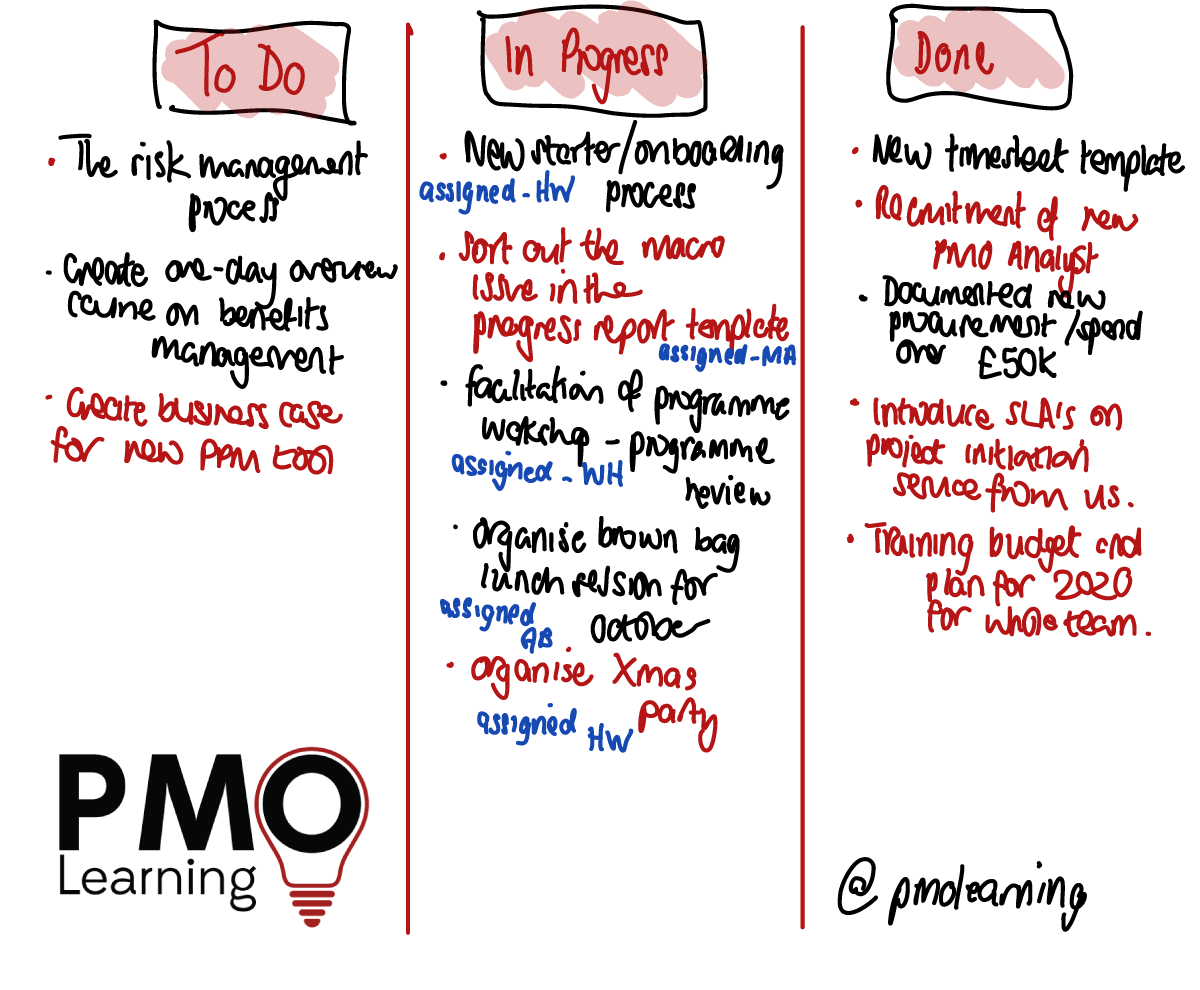 To Do
· The risk management
process
· Create one-day overview
course on benefits
management
· Create business case
for new PPM tool
In Progress
· New starter/onboarding
assigned - HW process
· Sort out the macro
issue in the
progress report template
assigned - MA
· facilitation of programme
workshop - programme
assigned - WH review
· organise brown bag
lunch session for
assigned
AB October
· organise Xmas
party
assigned HW
Done
· New timesheet template
· Recruitment of new
PMO Analyst
· Documented new
procurement/spend
over £50K
· Introduce SLA's on
project initiation
service from us.
· Training budget and
plan for 2020
for whole team.
PMO
Learning
@pmolearning